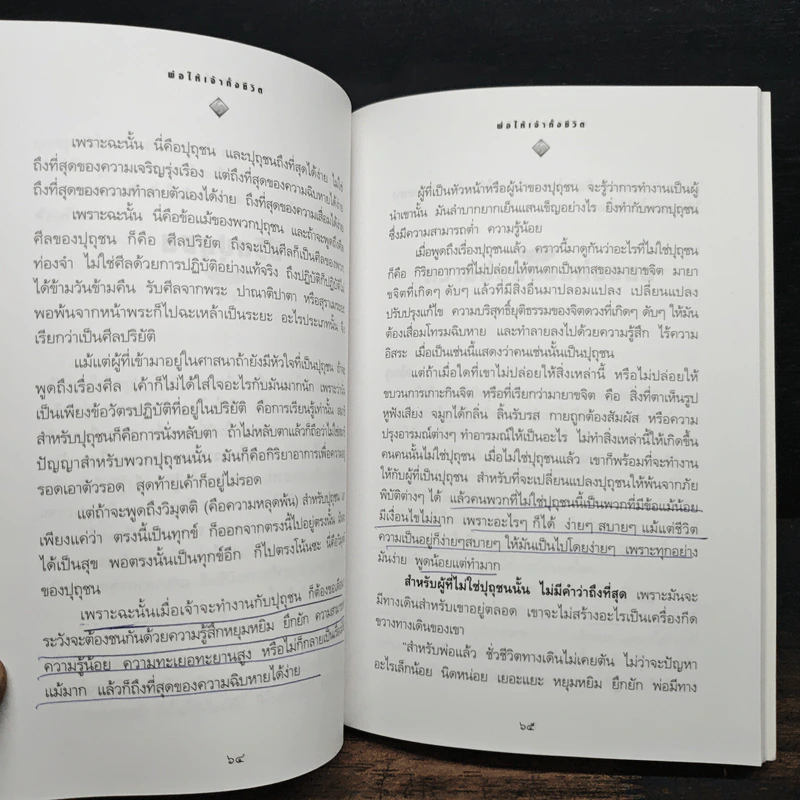 พ่อให้เจ้าทั้งชีวิต
เพราะฉะนั้น นี่คือปุถุชน และปุถุชนถึงที่สุดได้ง่าย ไม่ใช่
ถึงที่สุดของความเจริญรุ่งเรือง แต่ถึงที่สุดของความฉิบหายได้ง่าย
ถึงที่สุดของความทำลายตัวเองได้ง่าย ถึงที่สุดของความเสื่อมได้ง่าย
เพราะฉะนั้น นี่คือข้อแม้ของพวกปุถุชน และถ้าจะพูดถึง
ศีลของปุถุชน ก็คือ ศีลปริยัต ถึงจะเป็นศีลก็เป็นศีลของพวก
ท่องจำ ไม่ใช่ศีลด้วยการปฏิบัติอย่างแท้จริง ถึงปฏิบัติก็ปฏิบัติ
ได้ข้ามวันข้ามคืน รับศีลจากพระ ปาณาติปาตา หรือสุราเมระยะ
พอพ้นจากหน้าพระก็ไปฉะเหล้าเป็นระยะ อะไรประเภทนั้น
เรียกว่าเป็นศีลปริยัติ
แม้แต่ผู้ที่เข้ามาอยู่ในศาสนาถ้ายังมีหัวใจที่เป็นปุถุชน ถ้าจะ
พูดถึงเรื่องศีล เค้าก็ไม่ได้ใส่ใจอะไรกับมันมากนัก เพราะว่า
เป็นเพียงข้อวัตรปฏิบัติที่อยู่ในปริยัติ คือการเรียนรู้เท่านั้น
สำหรับปุถุชนก็คือการนั่งหลับตา ถ้าไม่หลับตาแล้วก็ถือว่าไม่ใช่
ปัญญาสำหรับพวกปุถุชนนั้น มันก็คือกิริยาอาการเพื่อความอยู่
รอดเอาตัวรอด สุดท้ายเค้าก็อยู่ไม่รอด
แต่ถ้าจะพูดถึงวิมุตติ (คือความหลุดพ้น) สำหรับปุถุชน
เพียงแค่ว่า ตรงนี้เป็นทุกข์ ก็ออกจากตรงนี้ไปอยู่ตรงนั้น
ได้เป็นสุข พอตรงนั้นเป็นทุกข์อีก ก็ไปตรงโน้นซะ นี่คือวิมุตติ
ของปุถุชน
เพราะฉะนั้นเมื่อเจ้าจะทำงานกับปุถุชน ก็ต้องขอเตือน
ระวังจะต้องชนกันด้วยความรู้สึกหยุมหยิม ยึกยัก ความสามารถ
ความรู้น้อย ความทะเยอทะยานสูง หรือไม่ก็กลายเป็น
แม้มาก แล้วก็ถึงที่สุดของความฉิบหายได้ง่าย
๖๔
พ่อให้เจ้าทั้งชีวิต
ผู้ที่เป็นหัวหน้าหรือผู้นำของปุถุชน จะรู้ว่าการทำงานเป็นผู้
นำเขานั้น มันลำบากยากเย็นแสนเข็ญอย่างไร ยิ่งทำกับพวกปุถุชน
ซึ่งมีความสามารถต่ำ ความรู้น้อย
เมื่อพูดถึงเรื่องปุถุชนแล้ว คราวนี้มาดูกันว่าอะไรที่ไม่ใช่ปุถุชน
ก็คือ กิริยาอาการที่ไม่ปล่อยให้ตนตกเป็นทาสของมายาจิต มายา
ชจิตที่เกิดๆ ดับๆ แล้วที่มีสิ่งอื่นมาปลอมแปลง เปลี่ยนแปลง
ปรับปรุงแก้ไข ความบริสุทธิ์ยุติธรรมของจิตดวงที่เกิดๆ ดับๆ ให้มัน
ต้องเสื่อมโทรมฉิบหาย และทำลายลงไปด้วยความรู้สึก ไร้ความ
อิสระ เมื่อเป็นเช่นนี้แสดงว่าคนเช่นนั้นเป็นปุถุชน
แต่ถ้าเมื่อใดที่เขาไม่ปล่อยให้สิ่งเหล่านี้ หรือไม่ปล่อยให้
ขบวนการเกาะกินจิต หรือที่เรียกว่ามายาจิต คือ สิ่งที่ตาเห็นรูป
หูฟังเสียง จมูกได้กลิ่น ลิ้นรับรส กายถูกต้องสัมผัส หรือความ
ปรุงอารมณ์ต่างๆ ทำอารมณ์ให้เป็นอะไร ไม่ทำสิ่งเหล่านี้ให้เกิดขึ้น
คนคนนั้นไม่ใช่ปุถุชน เมื่อไม่ใช่ปุถุชนแล้ว เขาก็พร้อมที่จะทำงาน
ให้กับผู้ที่เป็นปุถุชน สำหรับที่จะเปลี่ยนแปลงปุถุชนให้พ้นจากภัย
พิบัติต่างๆ ได้ แล้วคนพวกที่ไม่ใช่ปุถุชนนี้เป็นพวกที่มีข้อแม้น้อย
มีเงื่อนไขไม่มาก เพราะอะไรๆ ก็ได้ ง่ายๆ สบายๆ แม้แต่ชีวิต
ความเป็นอยู่ก็ง่ายๆสบายๆ ให้มันเป็นไปโดยง่ายๆ เพราะทุกอย่าง
มันง่าย พูดน้อยแต่ทำมาก
สำหรับผู้ที่ไม่ใช่ปุถุชนนั้น ไม่มีคำว่าถึงที่สุด เพราะมันจะ
มีทางเดินสำหรับเขาอยู่ตลอด เขาจะไม่สร้างอะไรเป็นเครื่องกีด
ขวางทางเดินของเขา
"สำหรับพ่อแล้ว ชั่วชีวิตทางเดินไม่เคยตัน ไม่ว่าจะปัญหา
อะไรเล็กน้อย นิดหน่อย เยอะแยะ หยุมหยิม ยึกยัก พ่อมีทาง
๖๕